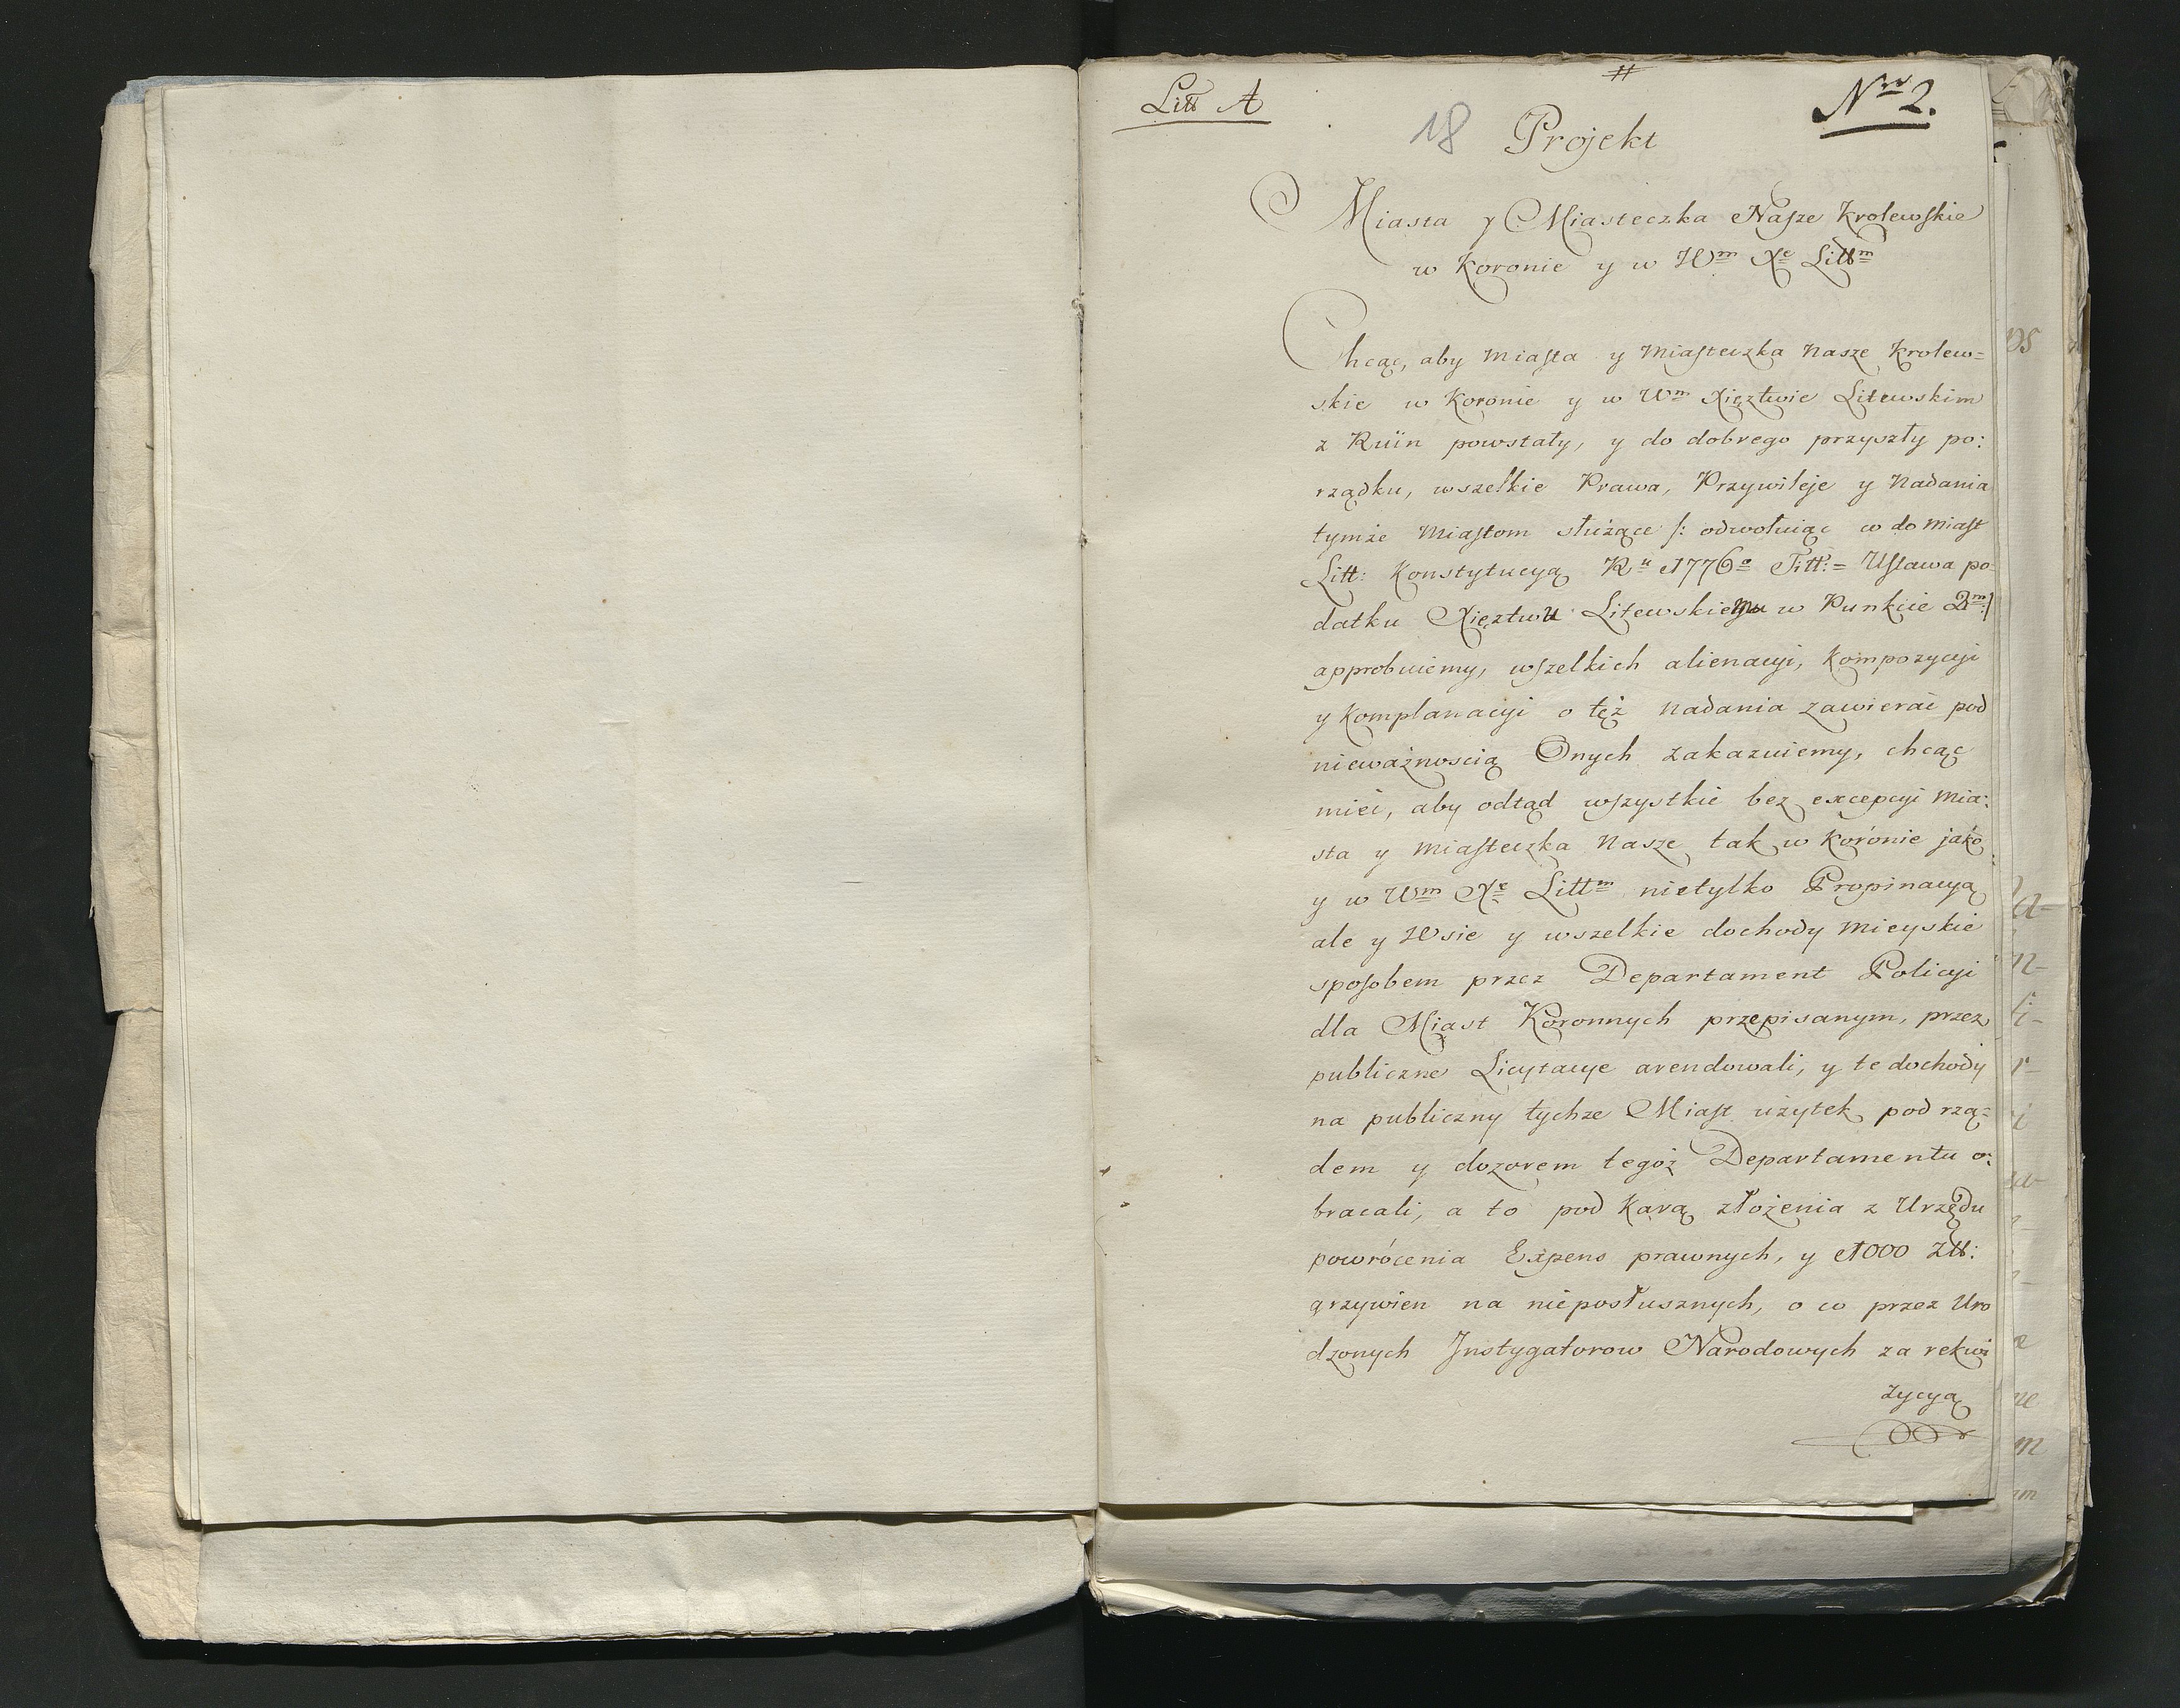 Litt A
#
Nro 2.
18 Projekt
Miasta y Miasteczka Nasze Krolewskie
w Koronie y w Wm Xe Littm
Chcąc, aby Miasta y Miasteczka Nasze Krolew=
skie w Koronie y w Wm Xięztwie Litewskim
z Ruin powstały, y do dobrego przyszły po:
rządku, wszelkie Prawa, Przywileje y Nadania
tymże Miastom służące /: odwołuiąc co do Miast
Litt: Konstytucyą Ru 1776o Titt: = Ustawa po=
datku Xięztwu Litewskiemu w Punkcie 2m:/
approbuiemy, wszelkich alienacyi, Kompozycyi
y Komplanacyi o też Nadania zawierać pod
nieważnoscią Onych zakazuiemy, chcąc
mieć, aby odtąd wszystkie bez excepcyi Mia:
sta y Miasteczka Nasze tak w Koronie jako
y w Wm Xe Littm nietylko Propinacyą
ale y Wsie y wszelkie dochody Mieyskie
sposobem przez Departament Policyi
dla Miast Koronnych przepisanym, przez
publiczne Licytacye arendowali, y te dochody
na publiczny tychże Miast użytek pod rzą=
dem y dozorem tegoż Departamentu o:
bracali, a to pod Karą złożenia z Urzędu
powrócenia Expens prawnych, y 1000 Ztt:
grzywien na nieposłusznych, o co przez Uro
dzonych Instygatorow Narodowych za rekwi
zycyą